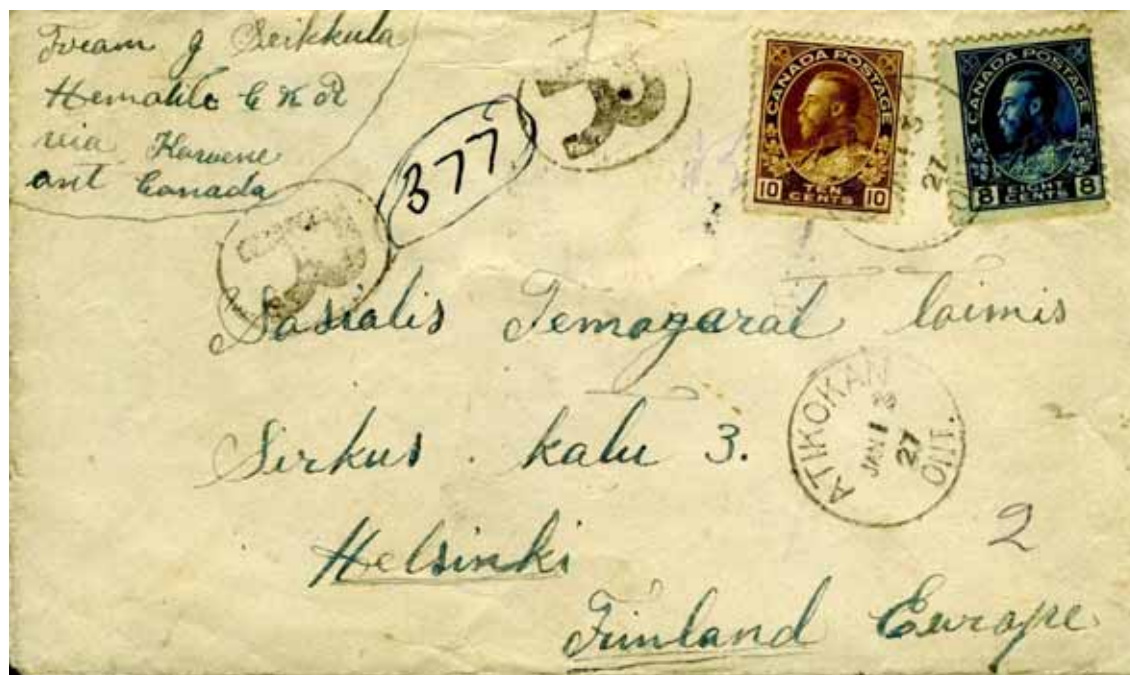 From J Seikkula
Hematite C N R
via Kawene
ont Canada
R
377
R
CANADA POSTAGE
10 TEN CENTS 10
CANADA POSTAGE
8 EIGHT CENTS 8
27
Sosialis Temogarat toimis
Sirkus katu 3.
ATIKOKAN
JAN 13
27
ONT.
2
Helsinki
Finland Europe